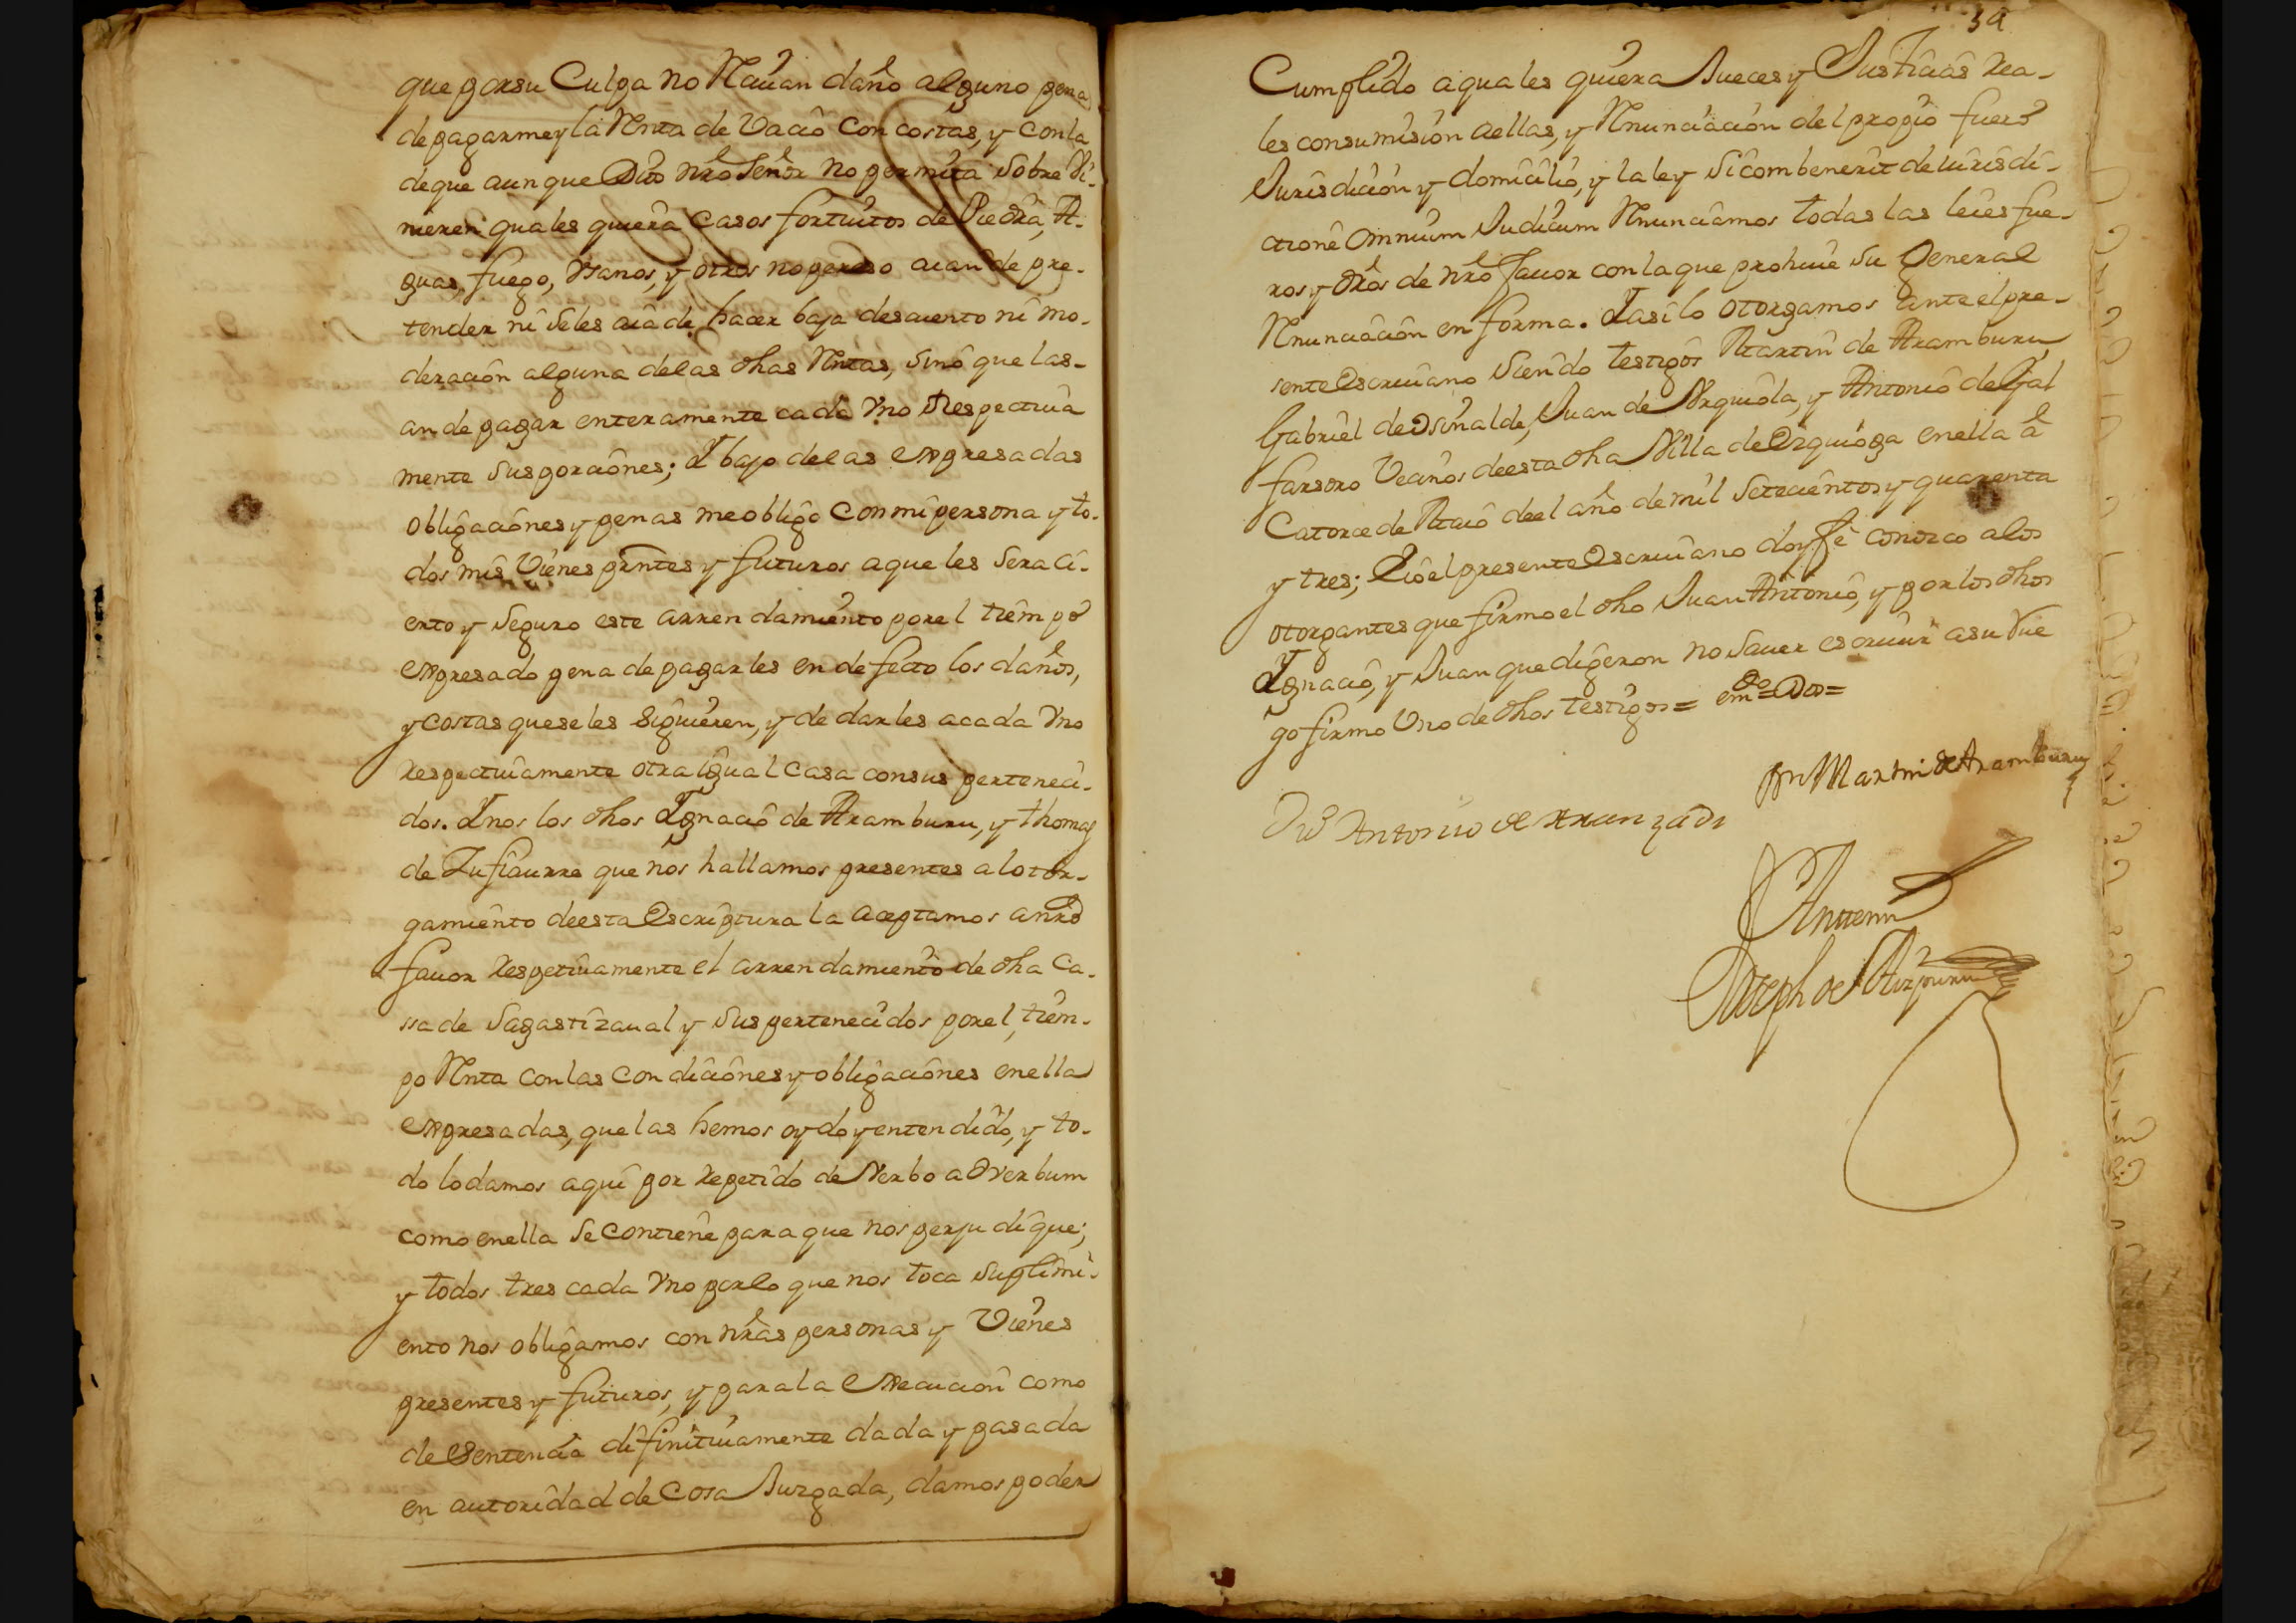 que por su Culpa no Rauan daño alguno pena
de pagarme y la Renta de Vacio con costas, y con la
de que aunque Dios nrõ Señor no permita sobre Vi-
nieren quales quiera casos fortuitos de Piedra, A-
guas, fuego, Vsanos, y otros no por eso aian de pre-
tender ni se les aia de hacer baja desquento ni mo-
deracion alguna de las dhas Rentas, sino que las-
an de pagar enteramente cada Vno Respectiua
mente sus porciones; Y bajo de las expresadas
obligaciones y penas me obligo con mi persona y to-
dos mis Vienes pntes y futuros a que les sera ci-
erto y seguro este arrendamiento por el tiempo
expresado pena de pagarles en defecto los daños,
y costas que se les siguieren, y de darles a cada Vno
respectiuamente otra igual casa con sus perteneci-
dos. Y nos los dhos Ygnacio de Aramburu, y thomas
de Zufiaurre que nos hallamos presentes al otor-
gamiento de esta Escriptura la aceptamos a nrõ
fauor respetiuamente el arrendamiento de dha Ca-
sa de Sagastizaual y sus pertenecidos por el tiem-
po Renta con las condiciones y obligaciones en ella
expresadas, que las hemos oydo y entendido, y to-
do lo damos aqui por repetido de Verbo ad Verbum
como en ella se contiene para que nos perjudique;
y todos tres cada Vno por lo que nos toca suplimi-
ento nos obligamos con nrãs personas y Vienes
presentes y futuros, y para la execucion como
de sentencia difinitiuamente dada y pasada
en autoridad de Cosa Juzgada, damos poder
34
Cumplido a quales quiera Jueces y Justicias rea-
les con sumision a ellas, y Renunciacion del propio fuero
Jurisdicion y domicilio, y la ley si combenerit de iurisdi-
ctione omnium Judicum Renunciamos todas las leies fue-
ros y drõs de nrõ fauor con la que prohiue su General
Renunciacion en forma. Y asi lo otorgamos ante el pre-
sente Escriuano siendo testigos Martin de Aramburu,
Gabriel de Osinalde, Juan de Urquiola, y Antonio de Gal
farsoro Vecinos de esta dha Villa de Ezquioga en ella â
Catorce de Maio de el año de mil Setecientos y quarenta
y tres; E io el presente Escriuano doy fê conozco a los
otorgantes que firmo el dho Juan Antonio, y por los dhos
Ygnacio, y Juan que digeron no sauer escriuir a su rue
go firmo Uno de dhos testigos = emdo = Dos =
Martin de Aramburu
Antonio de Aranzadi
Antemi
Joseph de Aizpuru